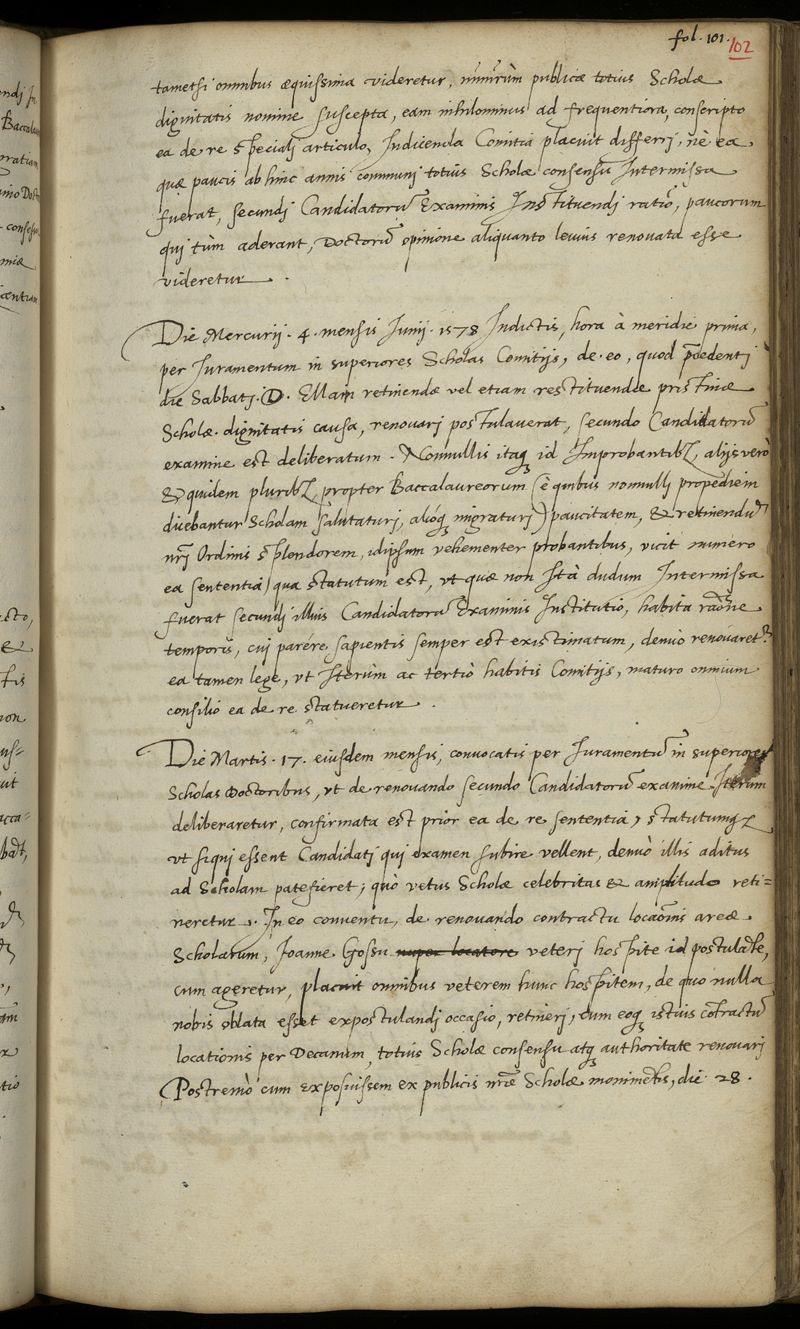 fol. 101.
102
tametsi omnibus æquissima videretur, nimirùm publicæ totius Scholæ
dignitatis nomine suscepta, eam nihilominus ad frequentiora, conscripto
ea de re speciali articulo, Indicenda Comitia placuit differri, nè ea,
quæ paucis ab hinc annis communj totius Scholæ consensu Intermissa
fuerat, secundj Candidatorū Examinis Instituendj ratio, paucorum
qui tùm aderant, Doctorū opinione aliquanto levius renovata esse
videretur.
Die Mercurij. 4. mensis Junij. 1578 Indictis, hora à meridie prima,
per Juramentum in superiores Scholas Comitijs, de eo, quod p̄cedentj
die Sabbatj. D. Ellain retinendæ vel etiam restituendæ pristinæ
Scholæ dignitatis causa, renovarj postulaverat, secundo Candidatorū
examine est deliberatum. Nonnullis itaq₃ id Improbantibꝫ, alijs verò
& quidem pluribꝫ, propter Baccalaureorum (è quibus nonnullj propediem
dicebantur Scholam salutaturj, alióq₃ migraturj) paucitatem, & retinendū
nr̄j Ordinis splendorem, idipsum vehementer probantibus, vicit numero
ea sententia, qua statutum est, vt quæ non Ità dudum Intermissa
fuerat secundj illius Candidatorū Examinis Institutio, habita rāōne
temporis, cuj parére sapientis semper est existimatum, denuo renovaret͛
ea tamen lege, vt Iterùm ac tertiò habitis Comitijs, maturo omnium
consilio ea de re statueretur.
Die Martis. 17. eiusdem mensis, convocatis per Juramentū in superiores
Scholas Doctoribus, vt de renovando secundo Candidatorū examine Iterùm
deliberaretur, confirmata est prior ea de re sententia, statutumq₃
vt siqui essent Candidatj qui examen subire vellent, denuò illis aditus
ad Scholam patefieret; quò vetus Scholæ celebritas & amplitudo reti=
neretur. In eo conventu, de renovando contractu locaōnis areæ
Scholarum, Joanne Gossu nuper locatore veterj hospite id postulāte,
cum ageretur, placuit omnibus veterem hunc hospitem, de quo nulla
nobis oblata esset expostulandj occasio, retinerj, eum eoq₃ istius cōtractū
locationis per Decanum, totius Scholæ consensu atq₃ authoritate renovarj
Postremò cum exposuissem ex publicis nr̄æ Scholæ monimētis, die 28.